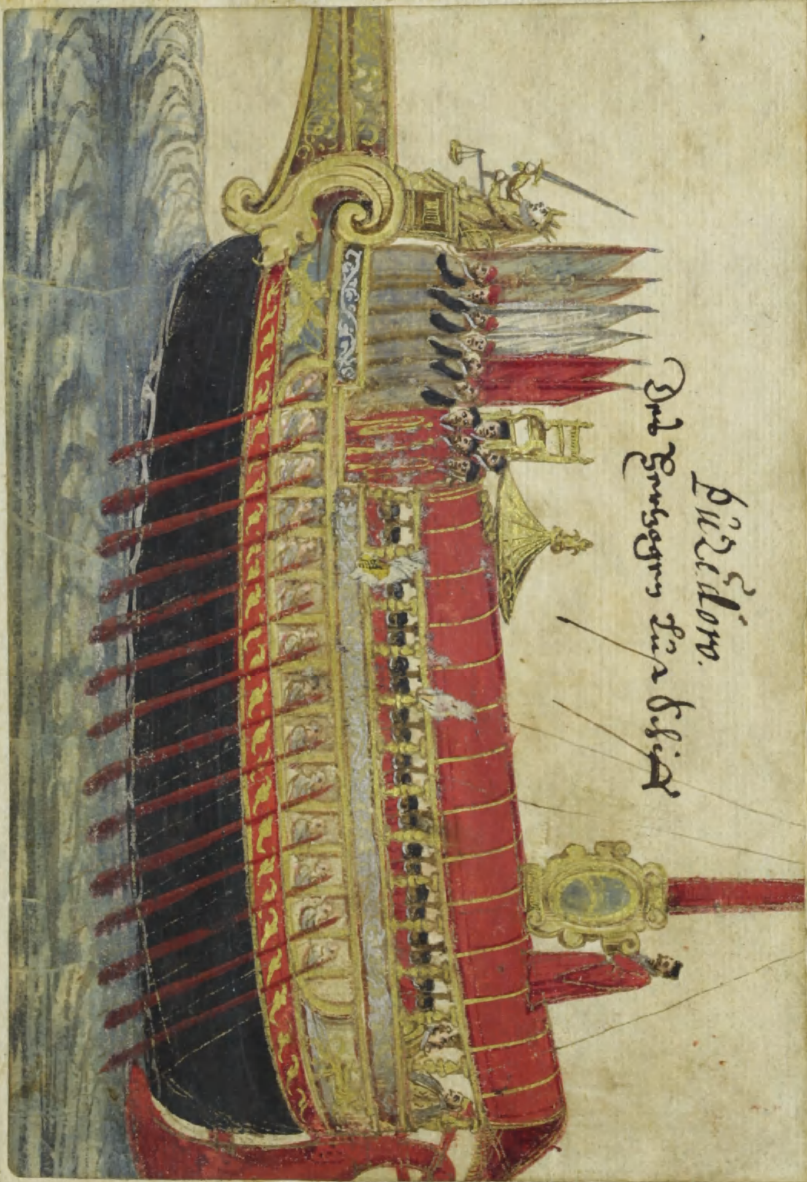 Buzedoro.
Des Hertzogen Lust Schiff